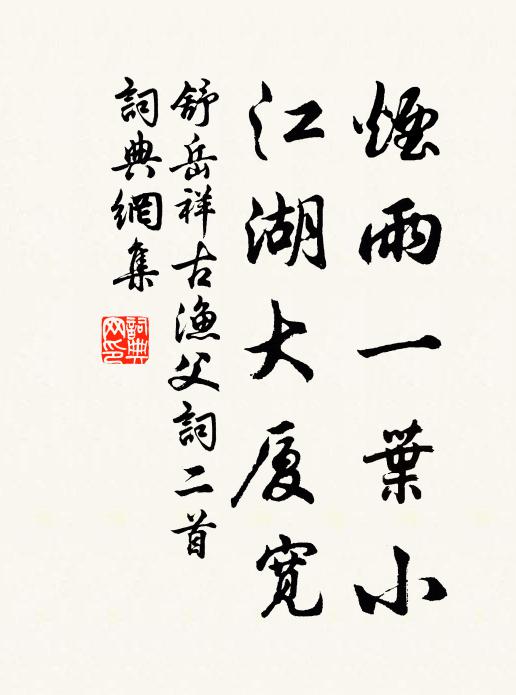 煙雨一葉小
江湖大厦寬
舒岳祥古漁父詞二首
詞典網集
詞典网印